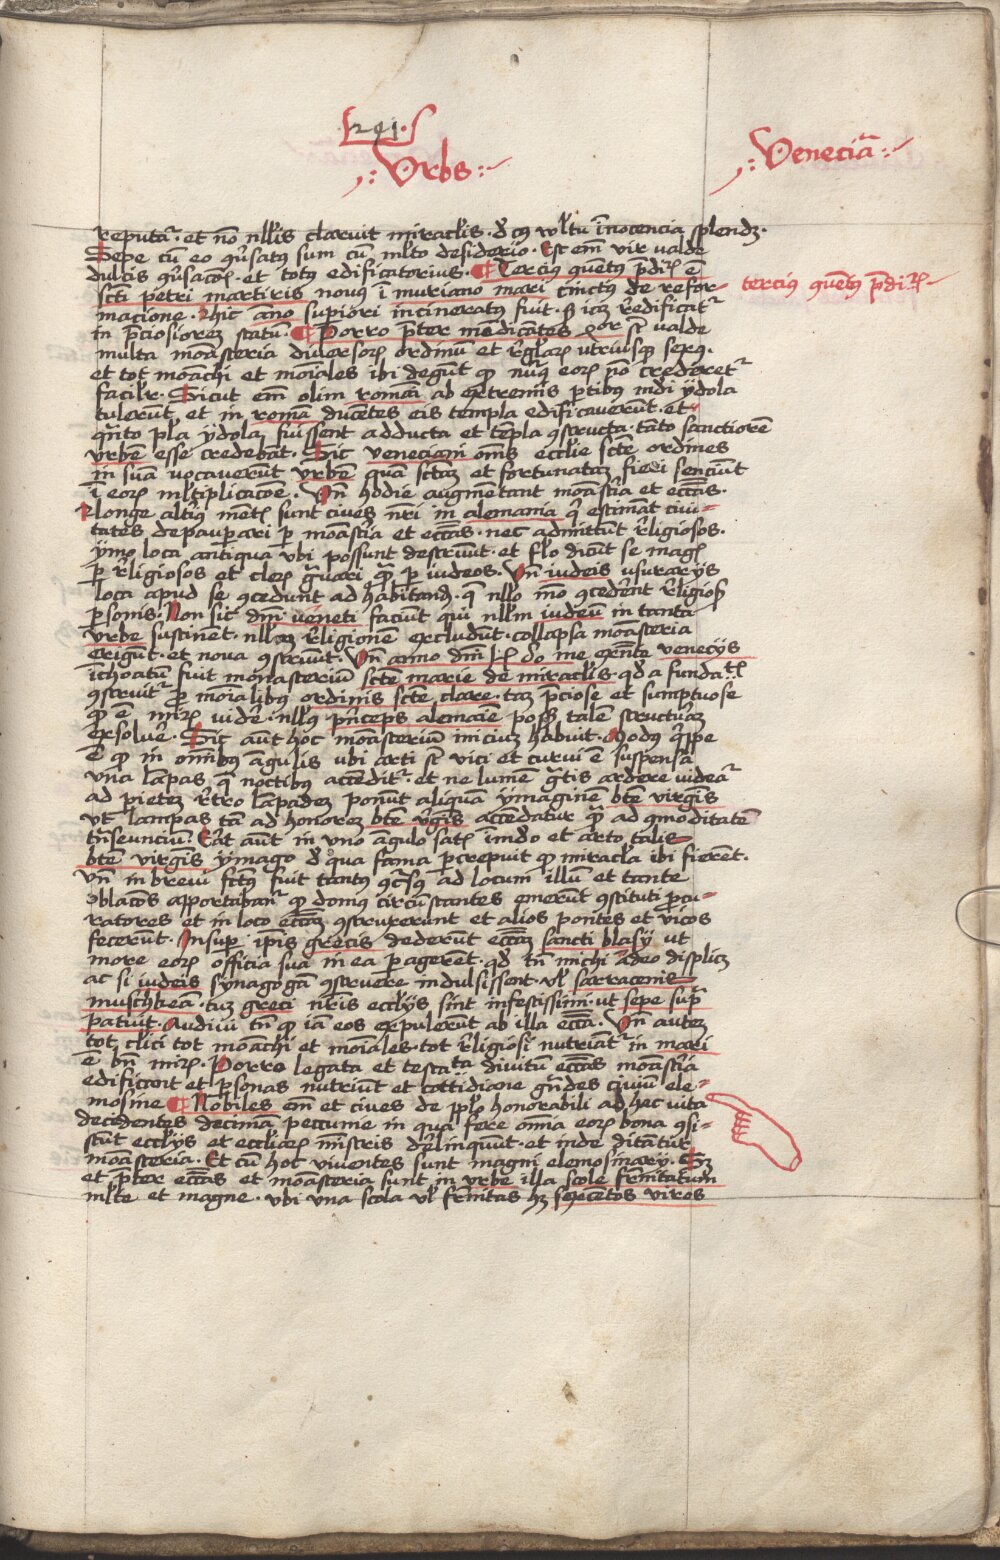 291
Urbs
Veneciā
reputaꝭ et nō nllis claruit miraclis · d' cꝯ vltu īnocencia splendꝫ ·
Sepe cū eo 9ūsatꝯ sum cū mlto desiderio · Est em̄ vir valde
dulcis 9ūsacōe · et totꝯ edificatorius · Terciꝯ 9uētꝯ p̄dicꝝ ē
scti petri martiris novus ī muriano mari cinctꝯ de refor-
terciꝯ 9uētꝯ p̄dicꝝ
macione · hic ano superiori incineratꝯ fuit · sꝫ iā reedificatꝰ
in p̄ciosiorem statū · Porro p̄ter mēdicātes eor st valde
multa monāsteria diversorꝝ ordinū et reglarꝝ utriusqꝫ sexꝯ ·
et tot monāchi et moīales ibi degūt qꝫ nūqꝫ eorꝝ no crederetꝰ
facilr · Sicut em̄ olim romāi ab extremis ptibus mdi ydola
tulerūt et in romā ducētes eis templa edificaverūt · et
qūto pla ydola fuissent adducta et tēpla 9structa · tāto sanctiorē
urbē esse credebāt · Sic veneciani om̄s ecclie scte ordines
in suā vocaverūt urbē quā sctā et fortunatā fieri senciūt
ī eorꝝ mltiplicacōe · Un̄ hodie augmētant monāstia et ecctas ·
Longe altiꝯ mētꝭ sunt cives nri in alemania qi estimāt civi-
tates depauperari p monāstia et ecctas · nec admittūt religiosos ·
ymo loca antiqua ubi possunt destruūt · et flo dicūt se magꝭ
p religiosos et clerꝝ gvari qꝫ p iudeos · Un̄ iudeis usurarijs
loca apud se 9cedunt ad habitandꝫ · q nllo mo 9cederēt religiosꝭ
psonis · Non sic dm̄i veneti faciūt qui nllm iudeū in tanta
urbe sustinēt · nllā religionē excludūt · collapsa monāsteria
erigūt · et nova 9struūt · Un̄ anno dm̄i me exnte venecijs
īchoatū fuit monasteriū scte marie de miraclis · qd a fundatꝭ
9struitꝰ p moialibꝯ ordinis scte clare · tā p̄ciose et sumptuose
qꝫ ē mirꝝ vidē · nllꝯ p̄nceps alemaīe possꝫ talē structurā
exsolvē · Sic aut hoc monāsteriū inicium habuit · Modus qppe
ē qꝫ in om̄ibꝯ angulis ubi arti st vici et curvi ē suspensa
una lāpas q noctibꝯ accēditꝰ · et ne lumē gtis ardere videāꝰ
ad pietem retro lāpadem ponūt aliquā ymaginē bte virgīs
ut lampas tā ad honorem bte vgīs accedatur qꝫ ad 9moditatē
tnseunciū · Erāt aut in uno angulo satꝭ īmdo et arto talis
bte virgīs ymago d' qua fama pcrepuit qꝫ miracla ibi fierent ·
Un̄ in brevi sctꝯ fuit tantꝯ 9cursꝯ ad locum illū et tante
oblacōes apportabanꝰ qꝫ domꝯ circūstantes emerūt 9stituti pcu-
ratores et in loco ecctā 9struxerunt et alios pontes et vicos
fecerūt · Insup ipis grecis dederūt ecctā sancti blasij ut
more eorꝝ officia sua in ea peragerēt · qd tn michi adeo displicꝫ
ac si iudeis synagogā 9struere indulsissent · vl sarracenis
muschkeā · tū greci nris eccliijs sint infestissimi · ut sepe supꝰ
patuit · Audivi tn qꝫ iā eos expulerūt ab illa ecctā · Un̄ autem
tot clici tot monāchi et moiales · tot religiosi nutriātꝰ in mari
ē bn mirꝝ · Porro legata et testata divitū ecctas monāstia
edificāt et psonas nutriūt et cottidiane gndes civiū ele-
mosine Nobiles em̄ et cives de pplo honorabili ad hac vita
decedentes decimā peccunie in qua fere om̄ia eorꝝ bona 9si-
stūt eccliijs et eccliarꝝ ministris derelinquūt · et inde ditātur
monāsteria · Et cū hoc viventes sunt magni elemosinarij · Sꝫ
et p̄ter ecctas et monāsteria sunt in urbe illa scole fr̄nitatum
mlte et magne · ubi una scola vl fr̄nitas hꝫ sexcētos viros